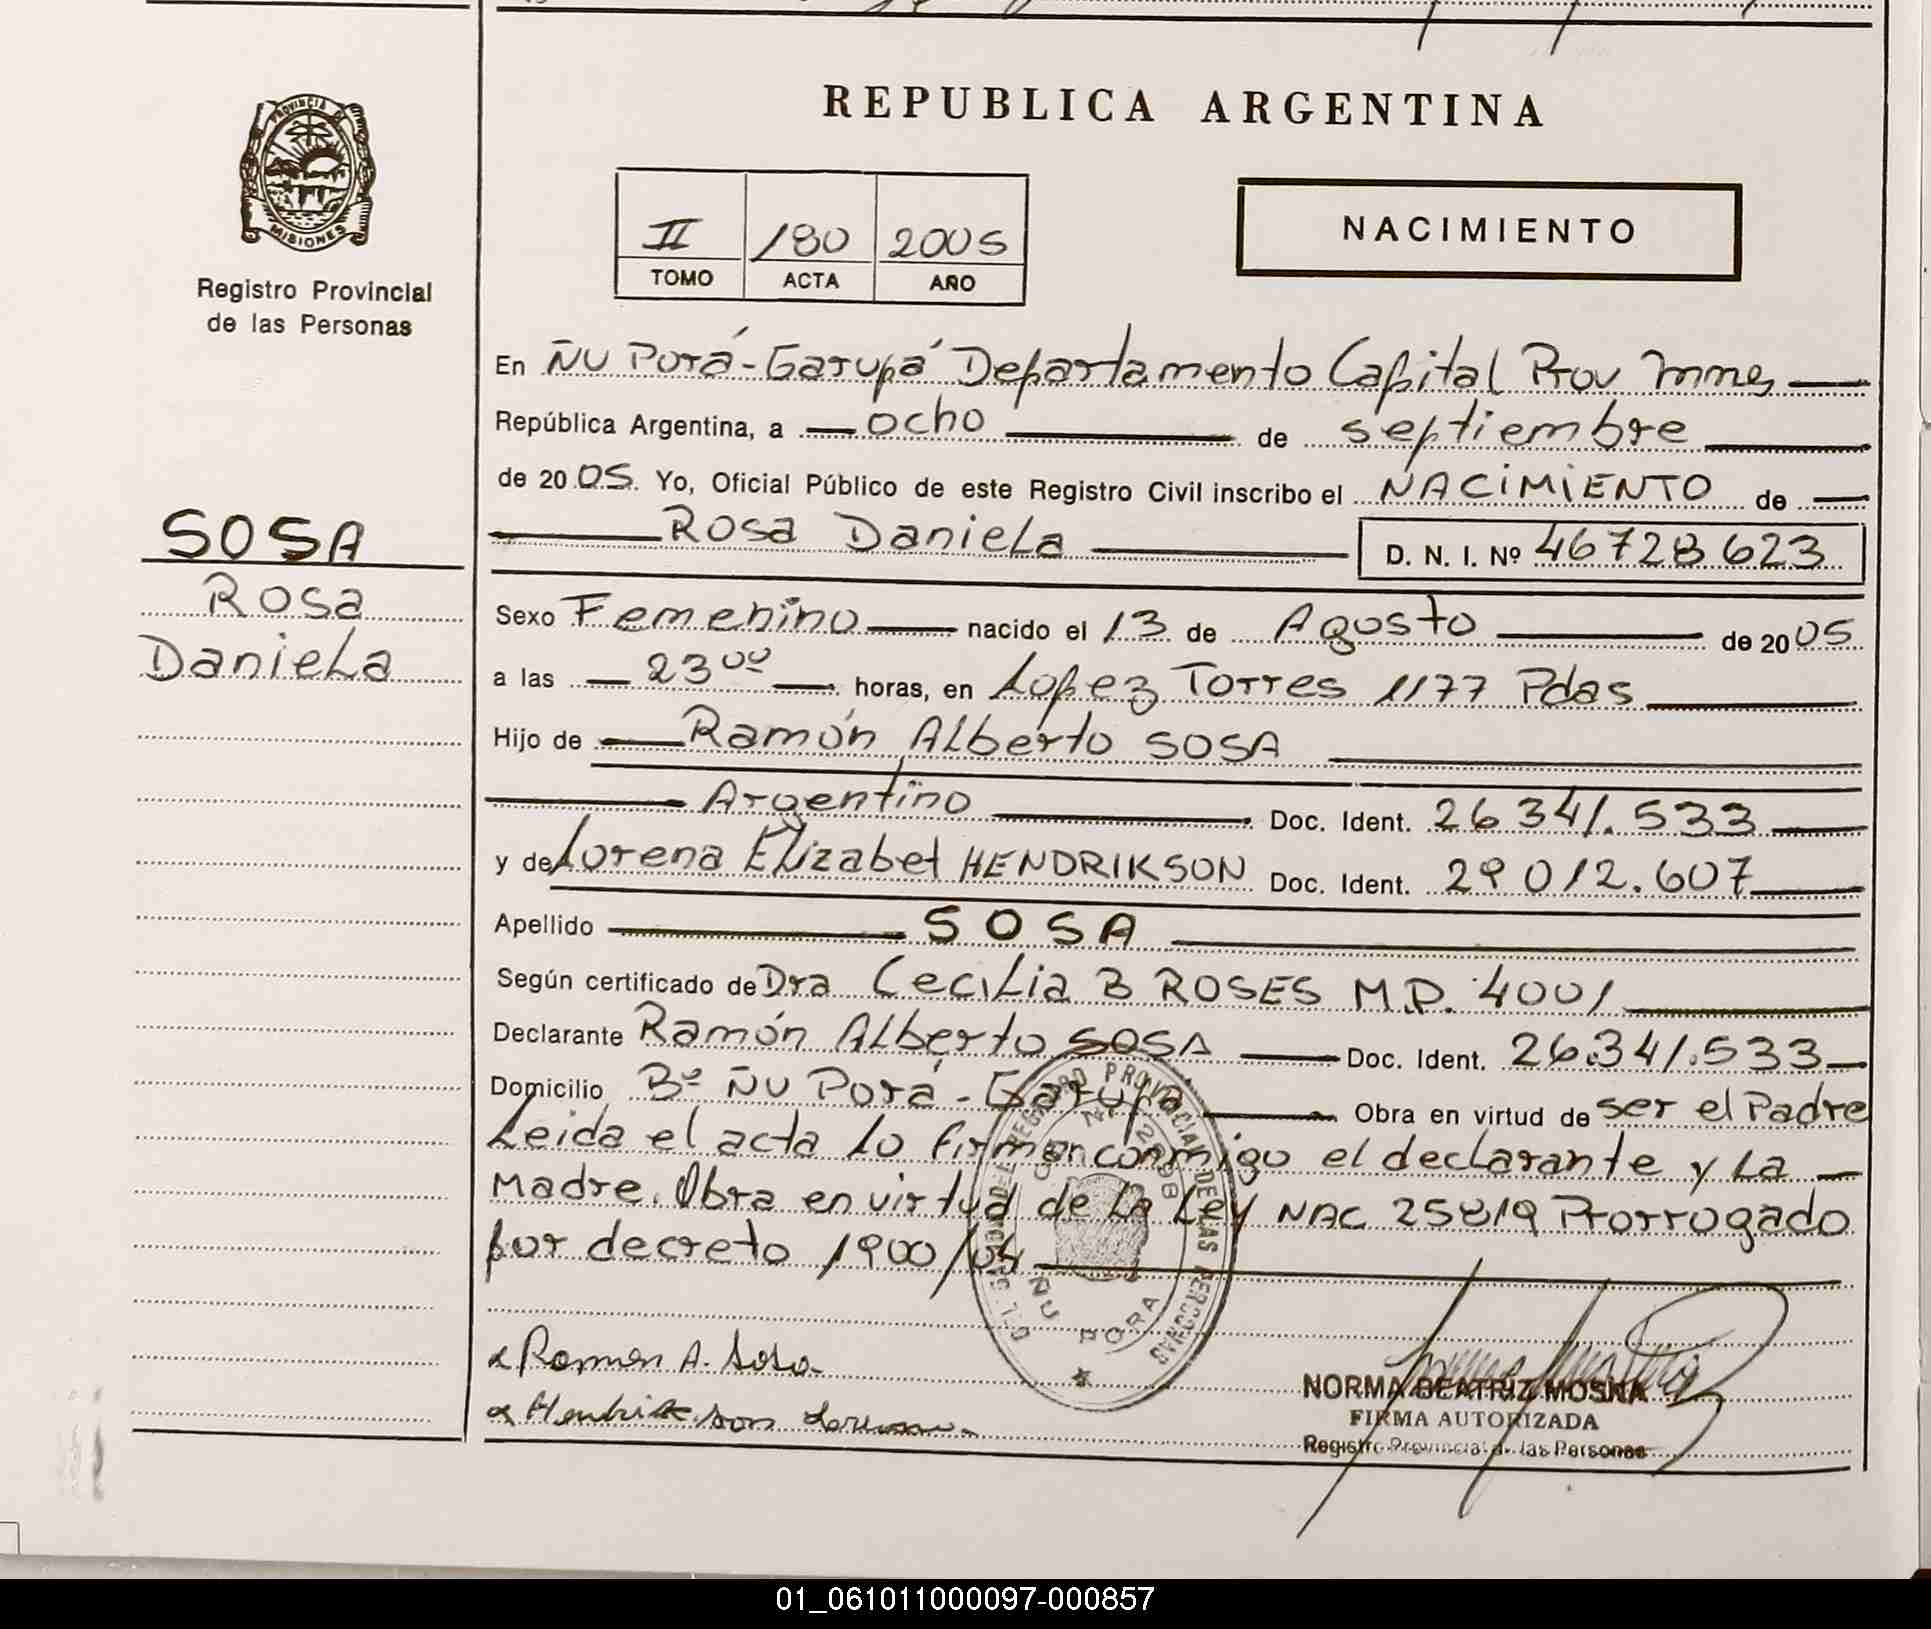 REPUBLICA ARGENTINA
PROVINCIA DE
MISIONES
Registro Provincial
de las Personas
II 180 2005
TOMO ACTA AÑO
NACIMIENTO
SOSA
Rosa
Daniela
En Ñu Porá-Garupá Departamento Capital Prov Mnes
República Argentina, a ocho de septiembre
de 2005. Yo, Oficial Público de este Registro Civil inscribo el NACIMIENTO de
Rosa Daniela D. N. I. Nº 46728623
Sexo Femenino nacido el 13 de Agosto de 2005
a las 23 00 horas, en Lopez Torres 1177 Pdas
Hijo de Ramón Alberto SOSA
Argentino Doc. Ident. 26341.533
y de Lorena Elizabet HENDRIKSON Doc. Ident. 29012.607
Apellido SOSA
Según certificado de Dra Cecilia B ROSES M.P. 4001
Declarante Ramón Alberto SOSA Doc. Ident. 26.341.533
Domicilio Bº ÑU Porá - Garupá Obra en virtud de ser el Padre
Leida el acta lo firman conmigo el declarante y la
Madre. Obra en virtud de la Ley NAC 25819 Prorrogado
por decreto 1900/04
REGISTRO PROVINCIAL DE LAS PERSONAS
ÑU PORA
Ramon A. Sosa
Hendrikson Lorena
NORMA BEATRIZ MOSKA
FIRMA AUTORIZADA
Registro Provincial de las Personas
01_061011000097-000857